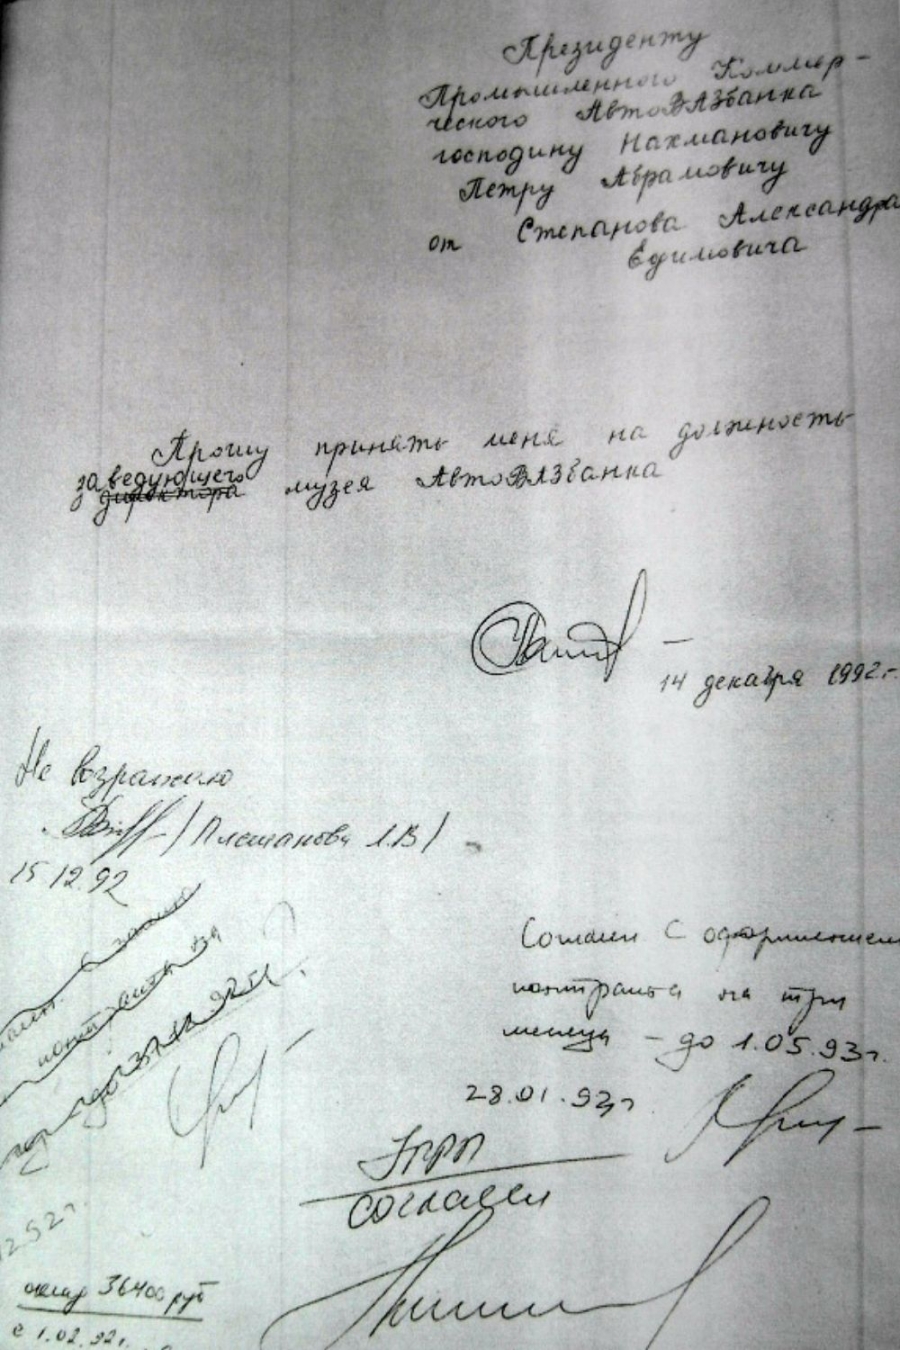 Президенту
Промышленного Коммер-
ческого АвтоВАЗбанка
господину Нахмановичу
Петру Абрамовичу
от Степанова Александра
Ефимовича
Прошу принять меня на должность
заведующего
директора музея АвтоВАЗбанка
14 декабря 1992 г.
Не возражаю
/Плешанова Л.В/
15 12.92
Согласен с оформлением
контракта на три
месяца - до 1.05.93г.
28.01.93г
согласен
контракта на
до 31.12.92г.
12.92г.
оклад 36400 руб
с 1.02.92г.